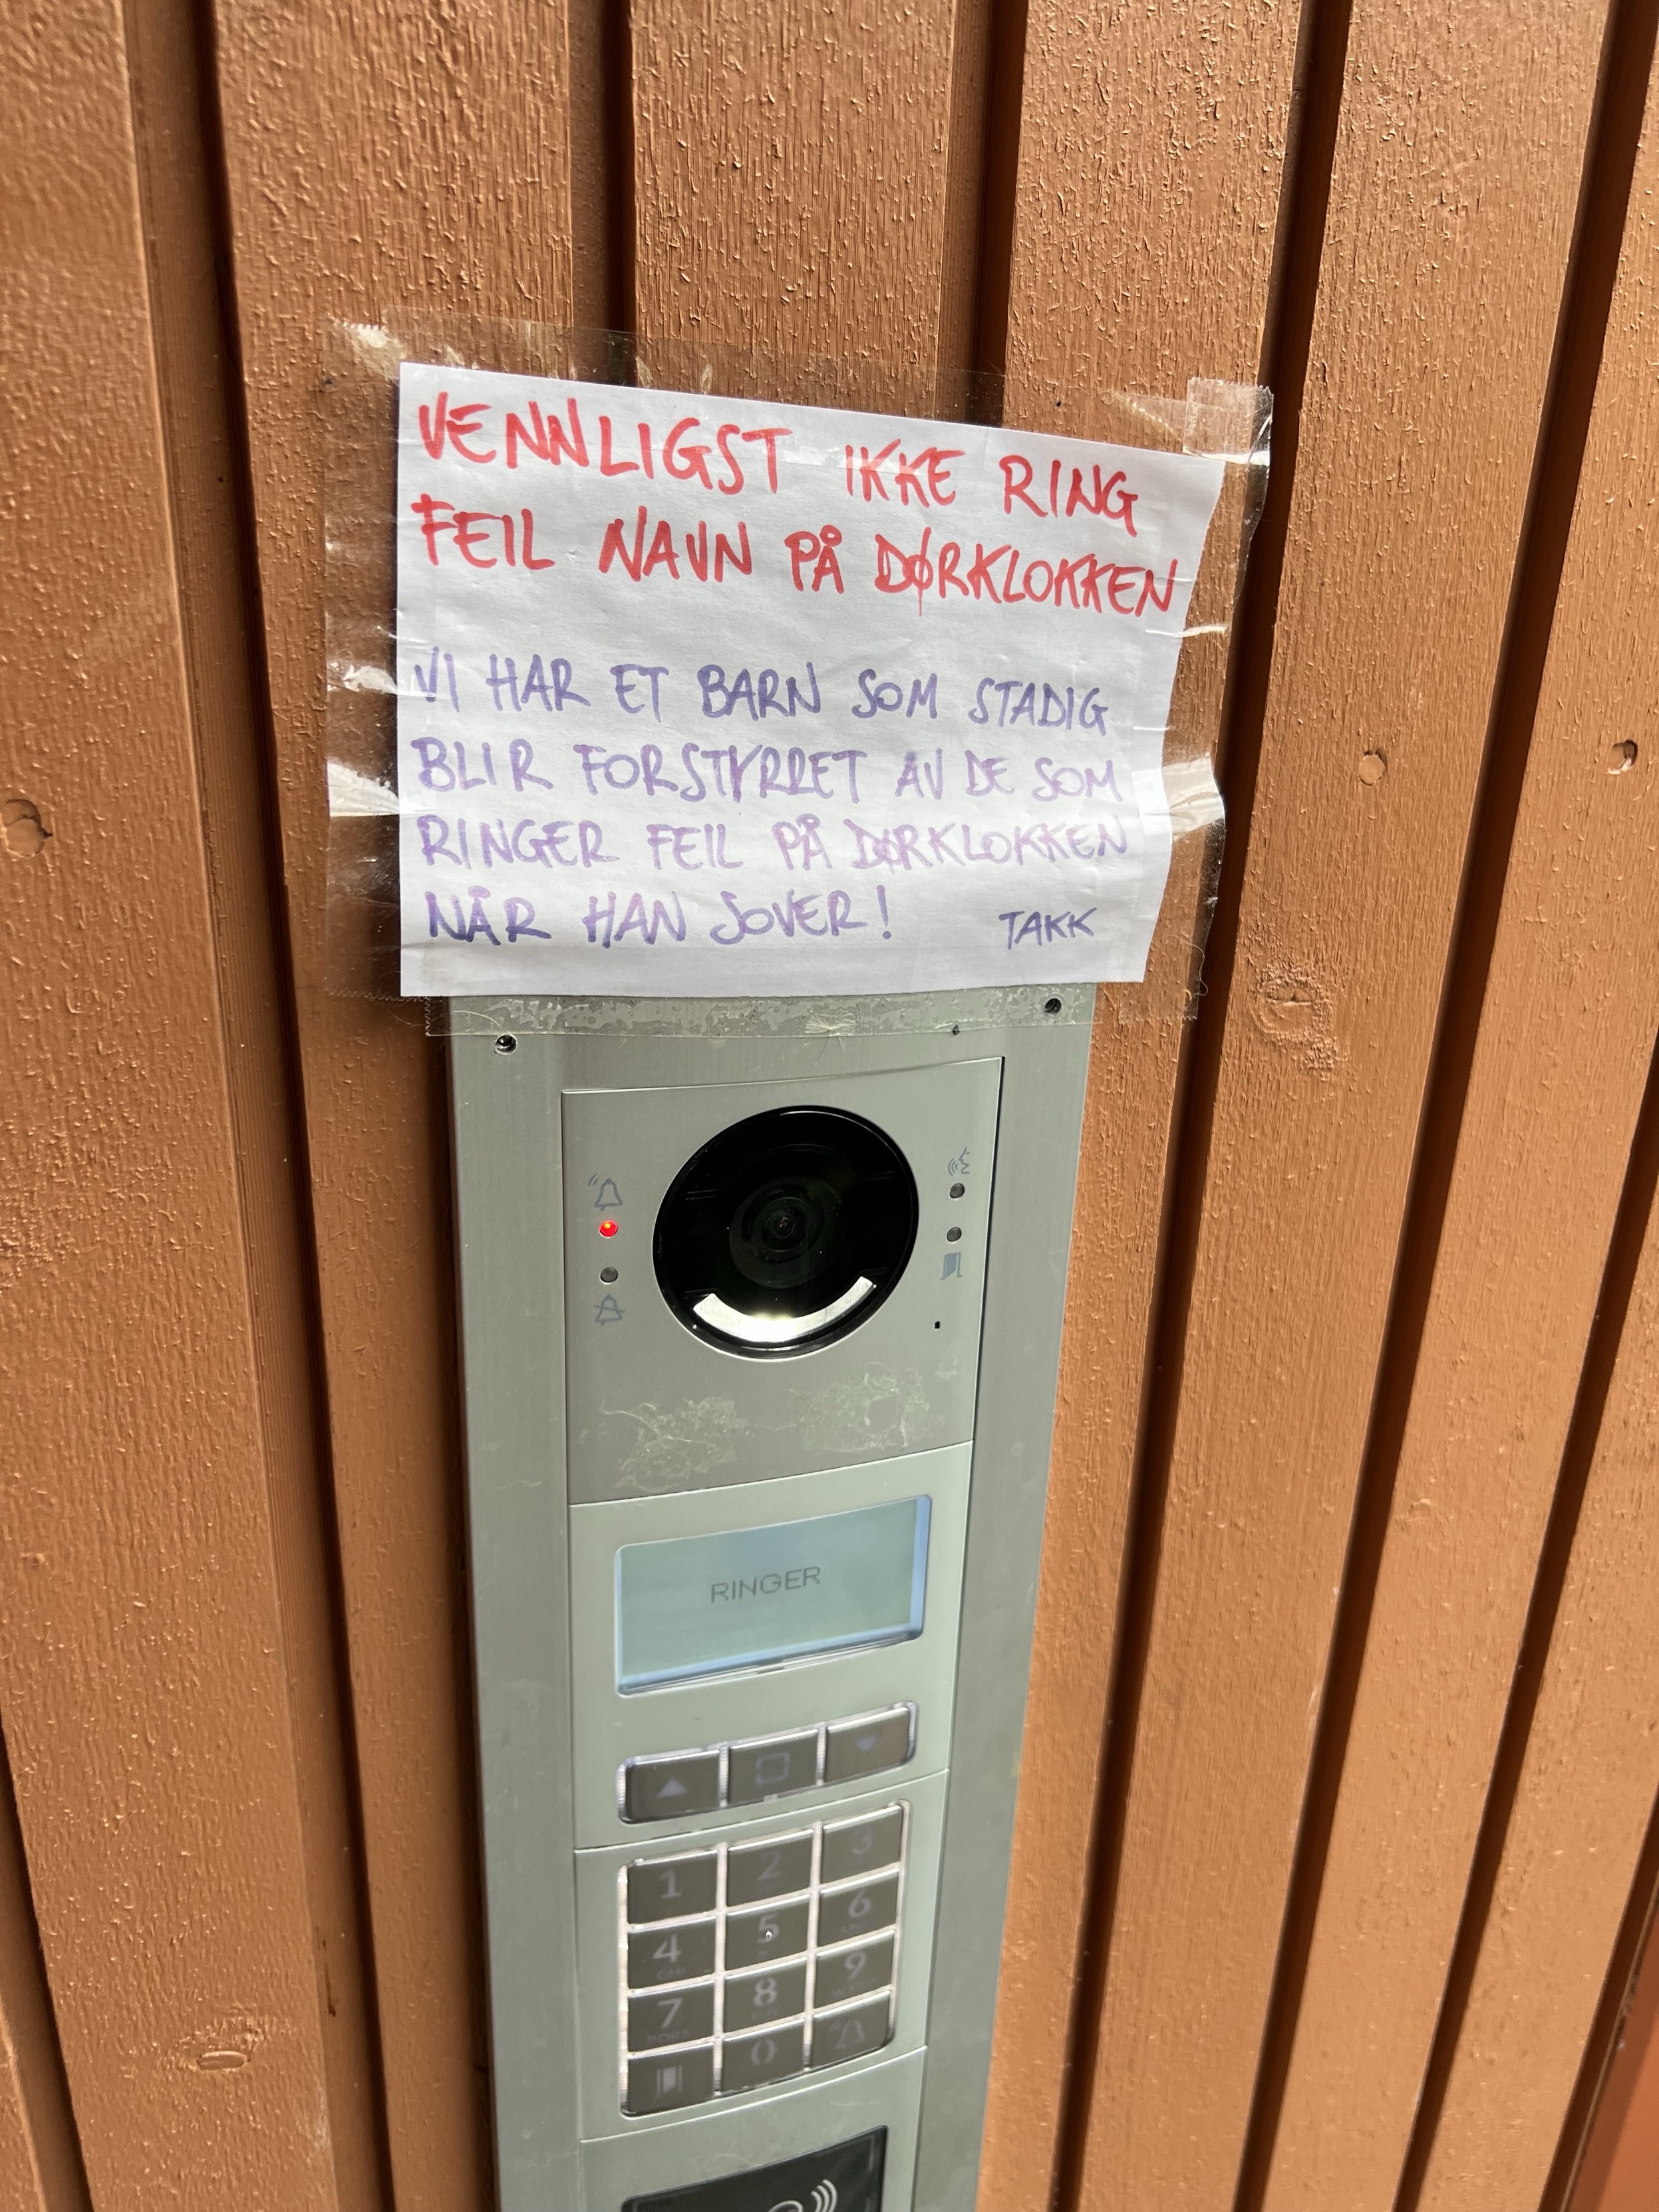 VENNLIGST IKKE RING
FEIL NAVN PÅ DØRKLOKKEN
VI HAR ET BARN SOM STADIG
BLIR FORSTYRRET AV DE SOM
RINGER FEIL PÅ DØRKLOKKEN
NÅR HAN SOVER! TAKK
RINGER
1 2 3
4 5 6
GHI
7 8 9
PQRS
0